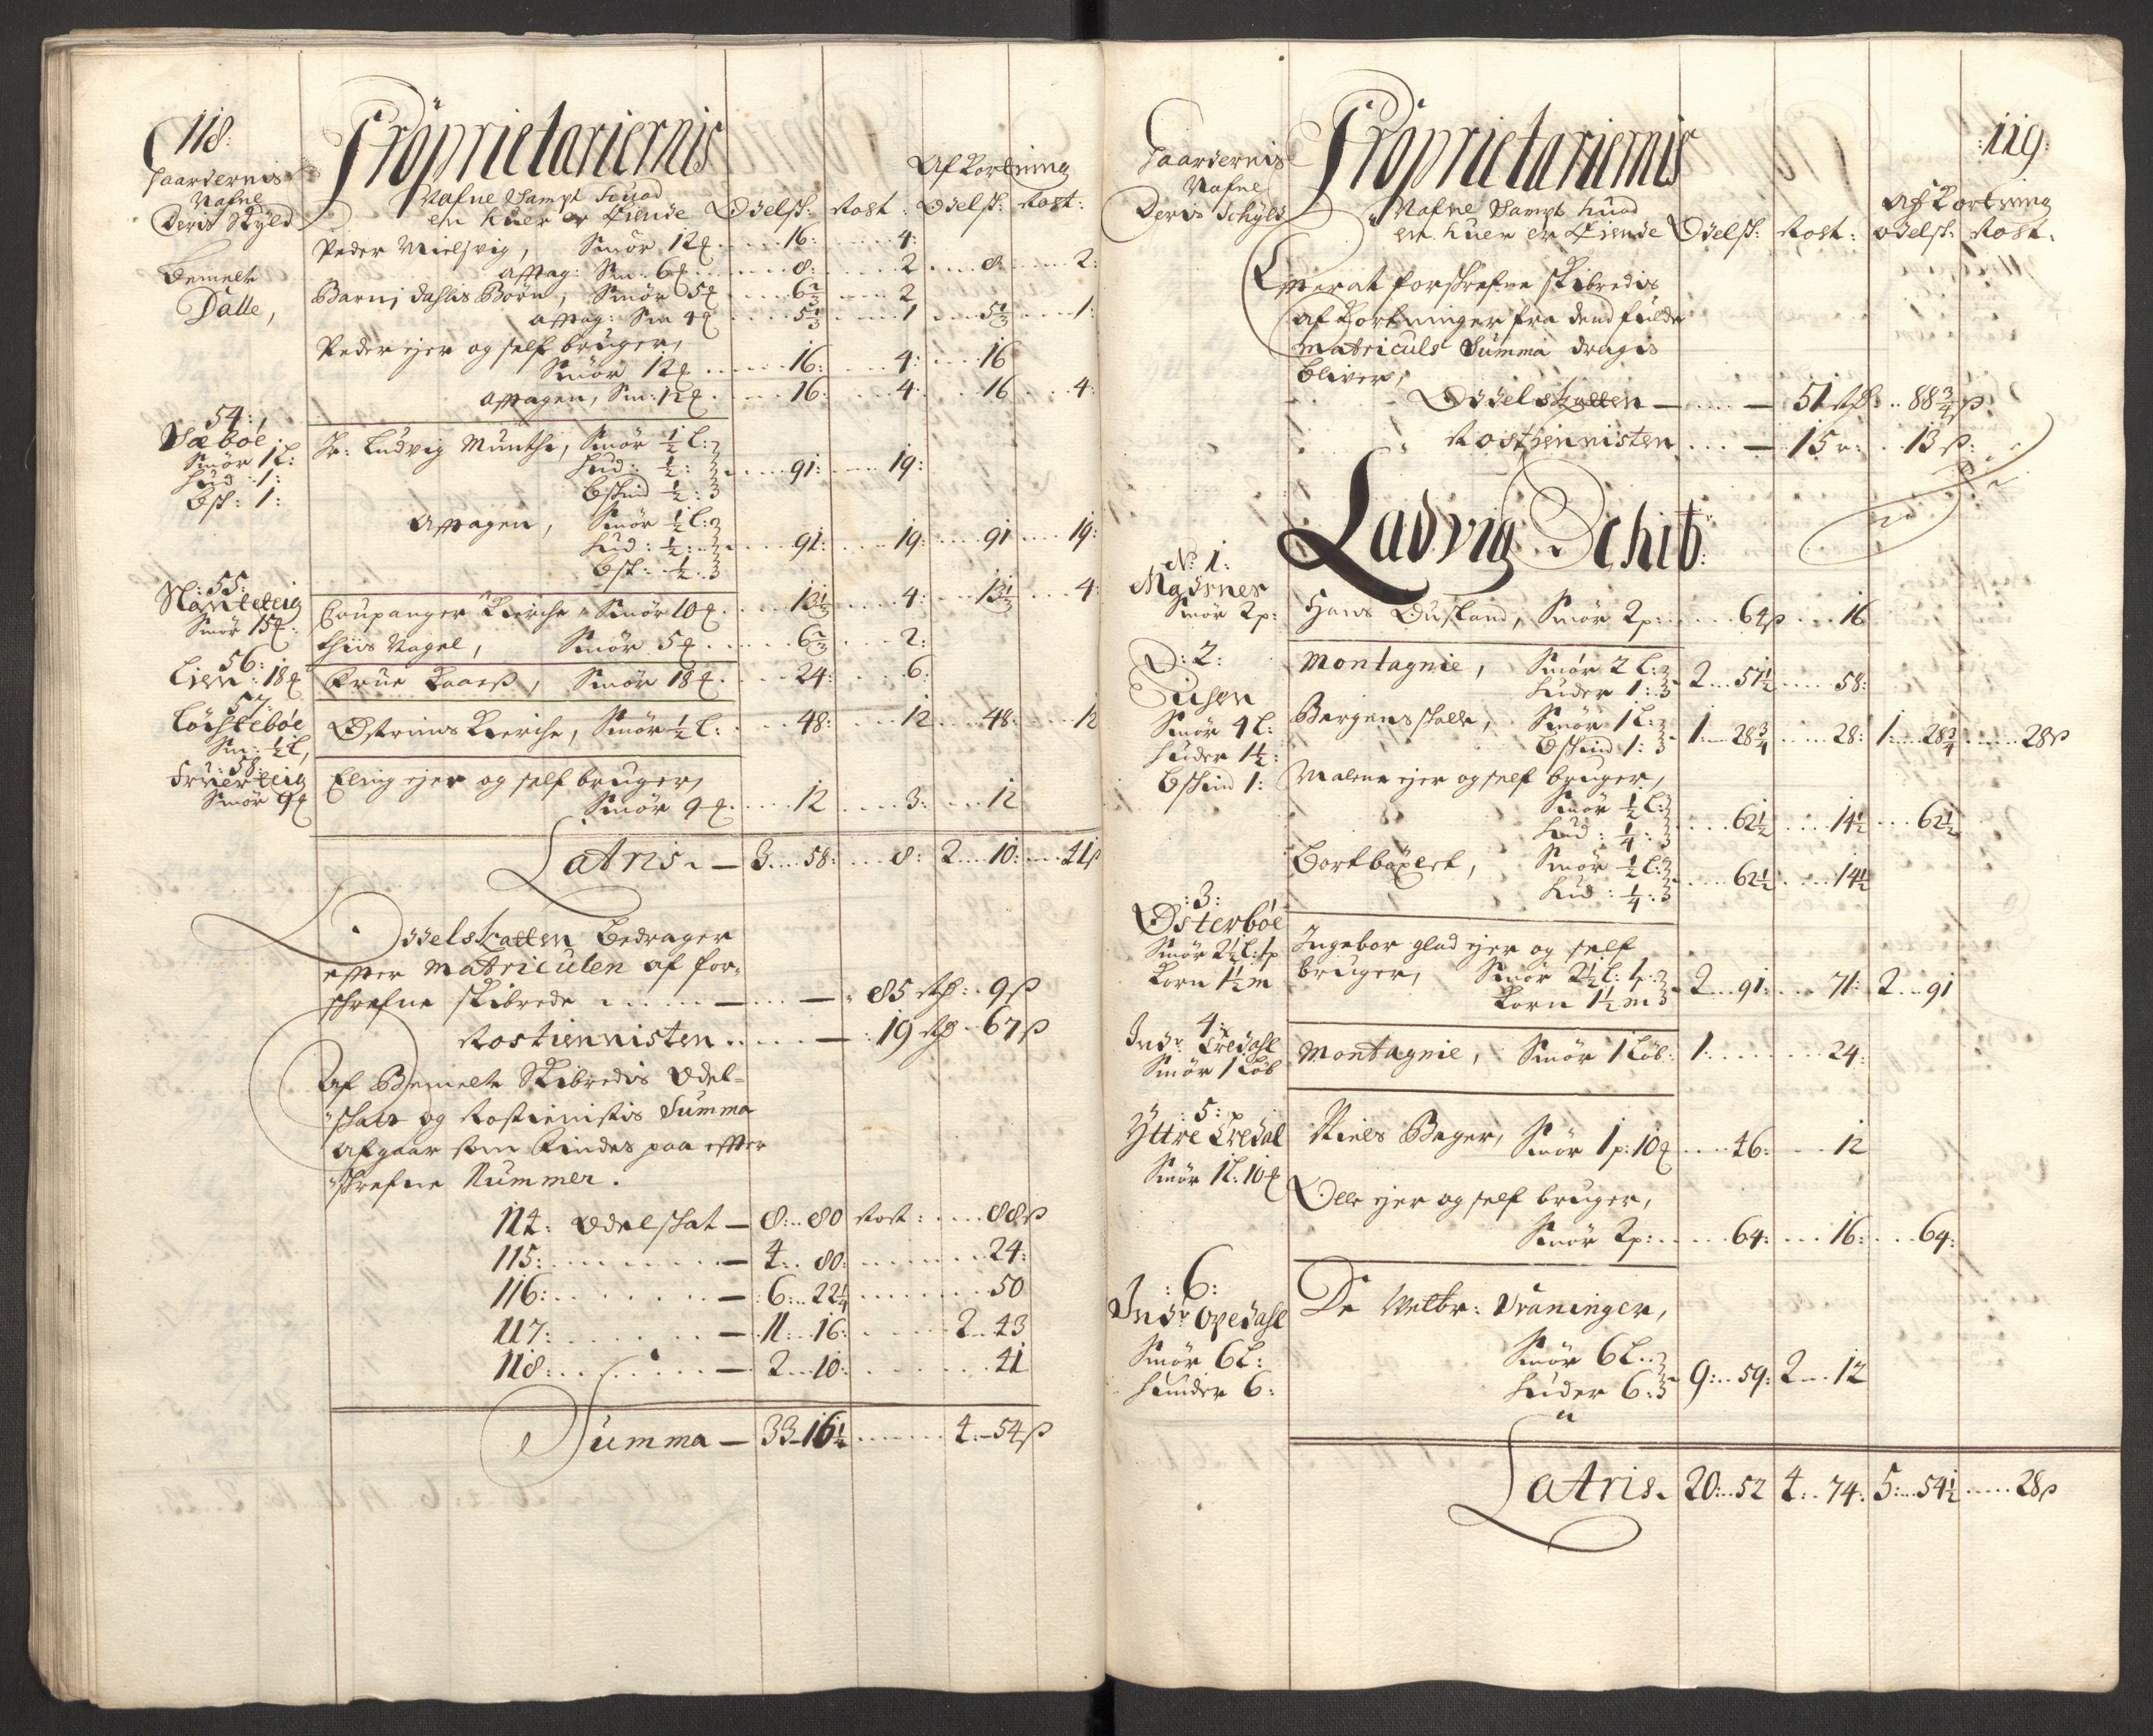 118:
Gaardernis
Nafne
Deris Skyld
Proprietariernis
Nafne Sampt huad
en huer er Eiende
Odelsk: Rost:
Afkortning
Odelsk: Rost:
Bemelte
Dalle,
Peder Mielsvig, Smör 12 16: 4:
Aftag: Sm: 6 8: 2 8: 2:
Barni Dahlis Börn, Smör 5 6 2/3 2
Aftag: Sm 4 5 1/3 1 5 1/3 1:
Peder ejer og self bruger,
Smör 12 16: 4: 16
Aftagen, Sm: 12 16: 4: 16 4:
54:
Sæböe
Smör 1 L:
Hud: 1:
Bsk: 1:
Hr: Ludvig Munthe, Smör 1/2 L:
Hud: 1/2: 91: 19:
Bskind 1/2:
Aftagen, Smör 1/2 L:
Hud: 1/2: 91: 19: 91 19:
Bsk: 1/2:
:55:
Smör 15
Coupanger Kierche Smör 10 13 1/3 4: 13 1/3 4:
Thiis Nagel, Smör 5 6 2/3 2:
56:
Lien: 18
Frue Kaars, Smör 18 24: 6:
57:
Löchteböe
Sm: 1/2 L,
Østrims Kierche, Smör 1/2 L: 48: 12 48: 12
:58:
Smör 9
Elling ejer og self bruger,
Smör 9 12 3: 12
Latris. 3 58: 8: 2 10: 41 ß
Odelskatten Bedrager
efter Matriculen af for-
schrefne skibrede 85 rd: 9 ß
Rostiennisten 19 rd 67 ß
Af Bemelte Skibredis Odel-
skatt og Rostienistis Summa
afgaar som findes paa efter
skrefne Nummer.
114: Odelskat 8: 80 Rost: 88 ß
115: 4: 80: 24:
116: 6: 22 1/4 50
117: 11: 16: 2 43
118: 2 10: 41
Summa 33 16 1/2 4 54 ß
119:
Gaardernis
Nafne
Deris Schyld
Proprietariernis
Nafne Sampt huad
en huer er Eiende
Odelsk: Rost:
Afkortning
Odelsk: Rost:
Efterat forskrefne skibredis
afkortninger fra dend fulde
Matriculs Summa dragis
bliver,
Odelskatten 51 rd: 88 3/4 ß
Rostiennisten 15 r: 13 ß:
Ladvig Schib:
No 1:
Madsnes
Smör 2 p:
Hans Dusland, Smör 2 p: 64 ß 16
:2:
Smör 4 L:
Huder 1 1/2:
Bskind 1:
Montagnie, Smör 2 L:
Huder 1: 2 57 1/2 58:
Bergens skolle, Smör 1 L:
Bskind 1: 1 28 3/4 28: 1: 28 3/4 28 ß
Malene ejer og self bruger,
Smör 1/2 L:
Hud: 1/4: 62 1/2 14 1/2 62 1/2
Bortböxlet, Smör 1/2 L:
Hud: 1/4: 62 1/2 14 1/2
:3:
Østerböe
Smör 2 1/2 L: 1 p
Korn 1 1/2 m
Ingebor glad ejer og self
bruger, Smör 2 1/2 L: 1 p:
Korn 1 1/2 m 2 91: 71: 2 91
4:
Indr: Eredahl
Smör 1 Löb
Montagnie, Smör 1 Löb: 1: 24:
:5:
Yttre Eredal
Smör 1 L: 10
Niels Bager, Smör 1 p: 10 46: 12
Olle ejer og self bruger,
Smör 2 p: 64: 16: 64:
:6:
Indr Opedahl
Smör 6 L:
Huuder 6:
De Velbr: Vraninger,
Smör 6 L:
Huder 6: 9: 59: 2 12
Latris. 20: 52 4: 74: 5: 54 1/2 28 ß